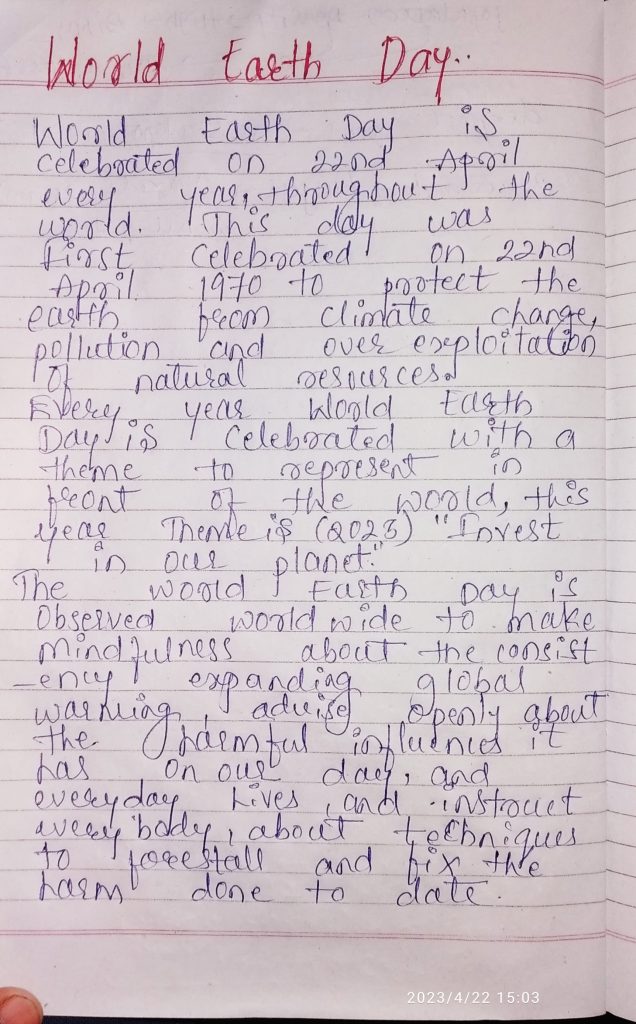 World Earth Day..
World Earth Day is
celebrated on 22nd April
every year, throughout the
world. This day was
first celebrated on 22nd
April 1970 to protect the
earth from climate change,
pollution and over exploitation
of natural resources.
Every year World Earth
Day is celebrated with a
theme to represent in
front of the world, this
year Theme is (2023) "Invest
in our planet."
The world Earth Day is
Observed world wide to make
mindfulness about the consist
-ency expanding global
warming, advise openly about
the harmful influences it
has on our day, and
everyday lives, and instruct
every body, about techniques
to forestall and fix the
harm done to date.
2023/4/22 15:03